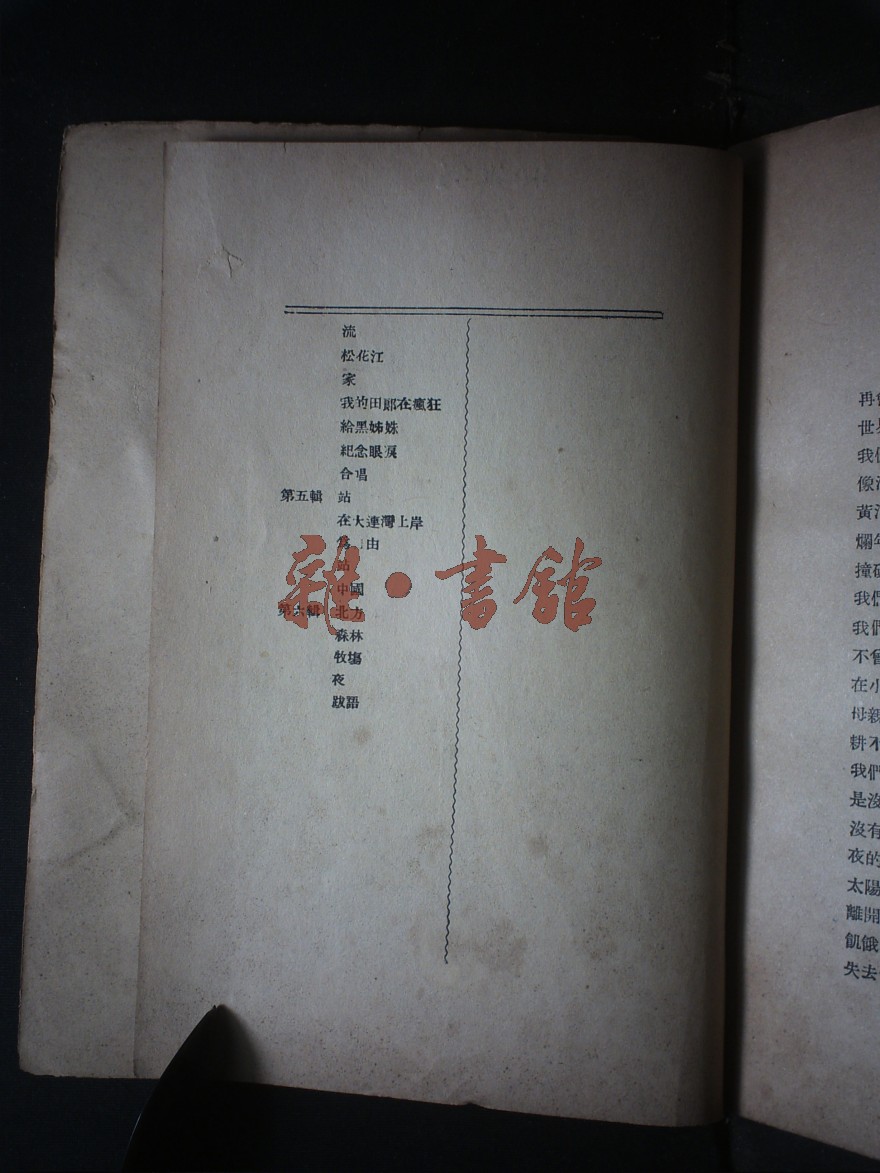 流
松花江
家
我的田園在瘋狂
給黑姊妹
紀念眼淚
合唱
第五輯 站
在大連灣上岸
為自由
站
中國
第六輯 北方
森林
牧場
夜
跋語
雜·書館
再
世界
我們
像
黃河
爛
撞破
我們
我們
不曾
在小
母親
耕不
我們
是沒
沒有
夜的
太陽
離開
飢餓
失去